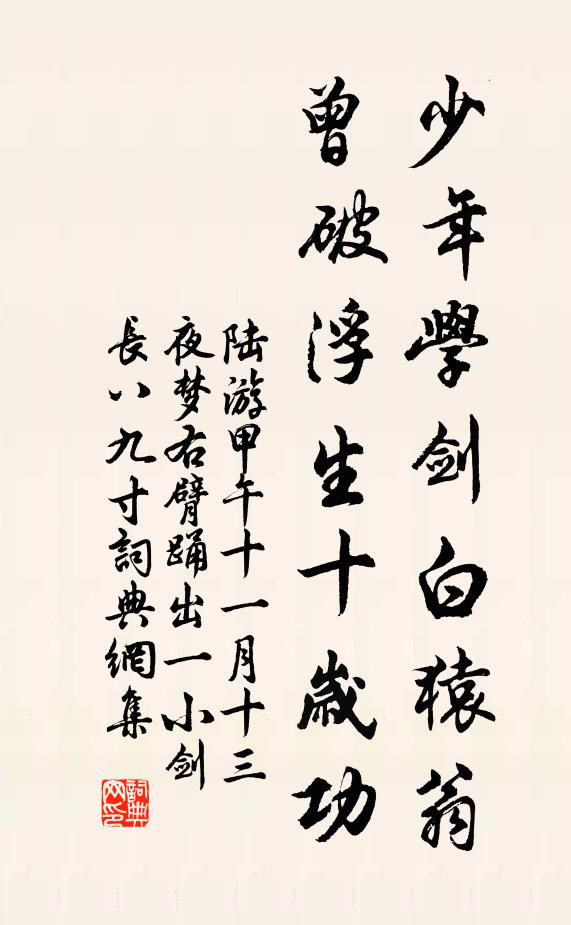 少年學剑白猿翁
曾破浮生十歲功
陆游甲午十一月十三
夜梦右臂踊出一小剑
長八九寸詞典網集
詞典
网印